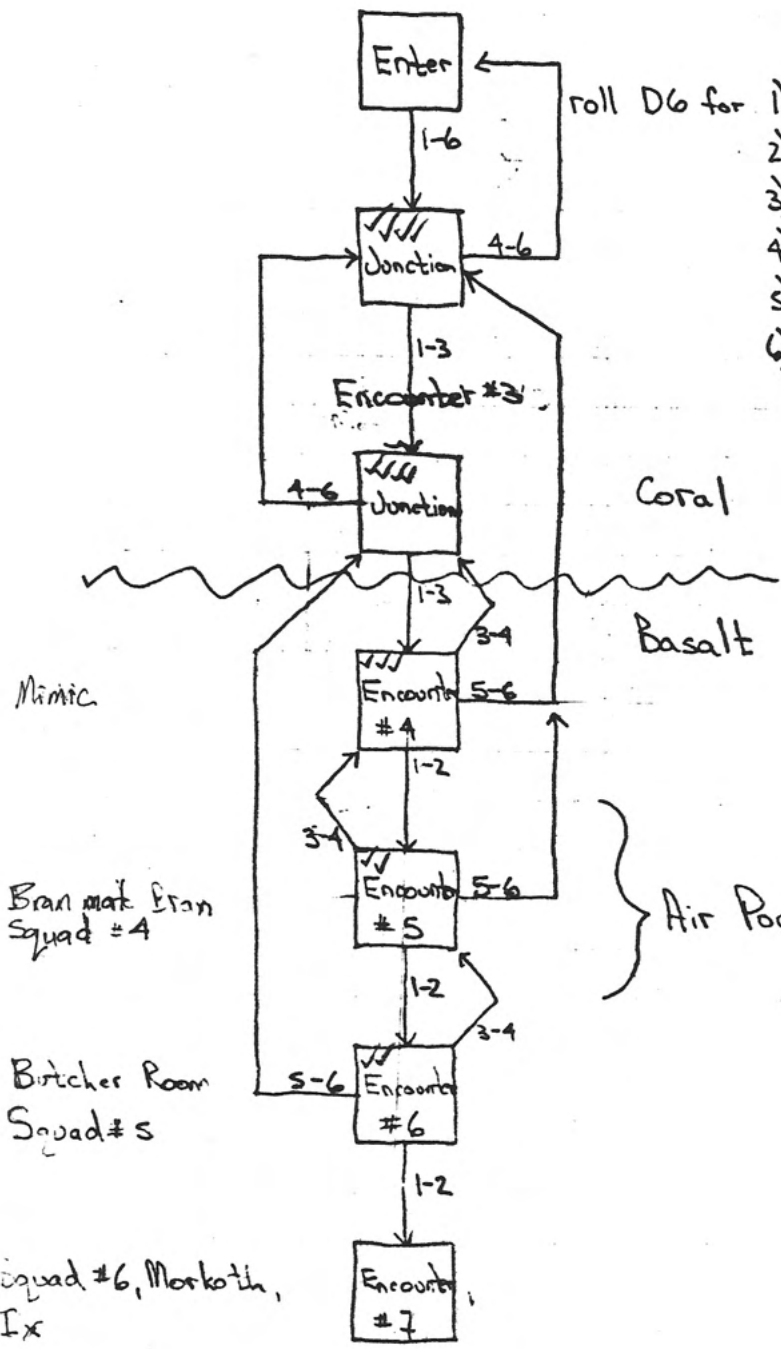 Enter
roll D6 for 1)
2)
3)
4)
5)
6)
1-6
Junction
4-6
1-3
Encounter #3
Junction
4-6
Coral
1-3
3-4
Basalt
Mimic
Encounter
#4
5-6
1-2
3-4
Bran mak
Squad #4
Encounter
#5
5-6
Air
1-2
3-4
Butcher Room
Squad #5
5-6
Encounter
#6
1-2
Squad #6, Morkoth,
Ix
Encounter
#7